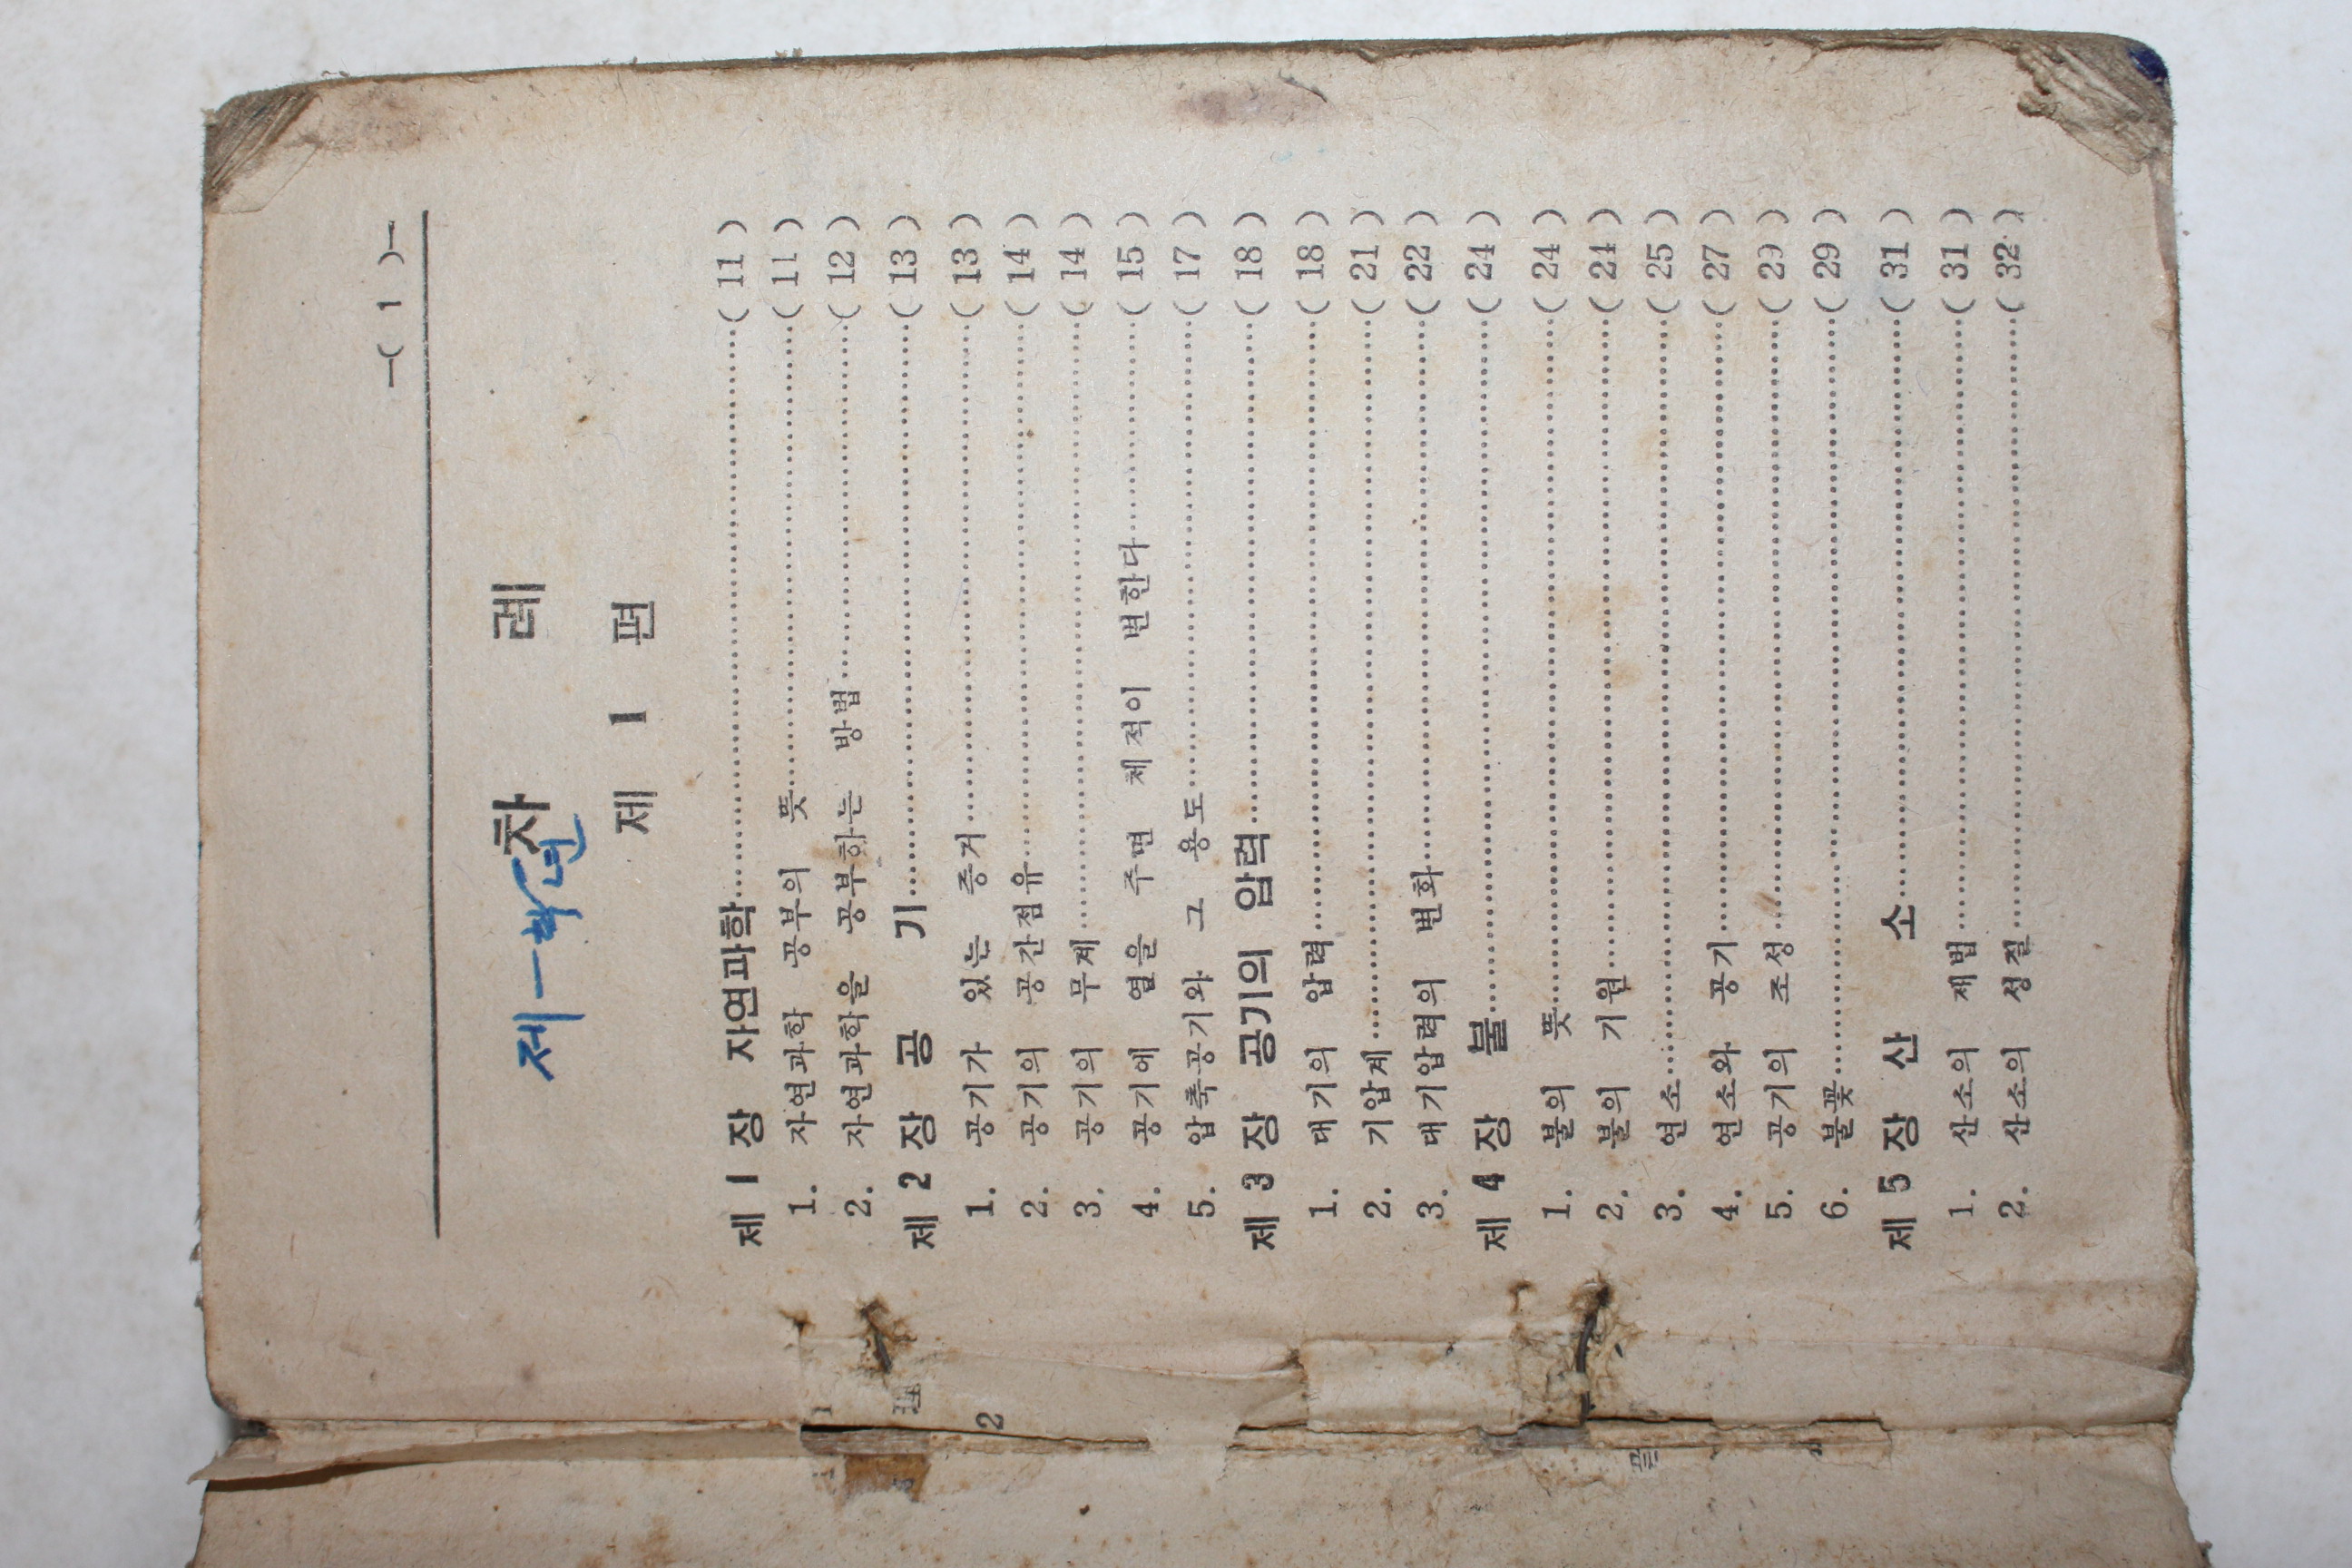 —( 1 )—
차 례
제一학년
제 1 편
제 1 장 자연과학……………( 11 )
1. 자연과학 공부의 뜻……………( 11 )
2. 자연과학을 공부하는 방법……………( 12 )
제 2 장 공 기……………( 13 )
1. 공기가 있는 증거……………( 13 )
2. 공기의 공간점유……………( 14 )
3. 공기의 무게……………( 14 )
4. 공기에 열을 주면 체적이 변한다……………( 15 )
5. 압축공기와 그 용도……………( 17 )
제 3 장 공기의 압력……………( 18 )
1. 대기의 압력……………( 18 )
2. 기압계……………( 21 )
3. 대기압력의 변화……………( 22 )
제 4 장 불……………( 24 )
1. 불의 뜻……………( 24 )
2. 불의 기원……………( 24 )
3. 연소……………( 25 )
4. 연소와 공기……………( 27 )
5. 공기의 조성……………( 29 )
6. 불꽃……………( 29 )
제 5 장 산 소……………( 31 )
1. 산소의 제법……………( 31 )
2. 산소의 성질……………( 32 )
2